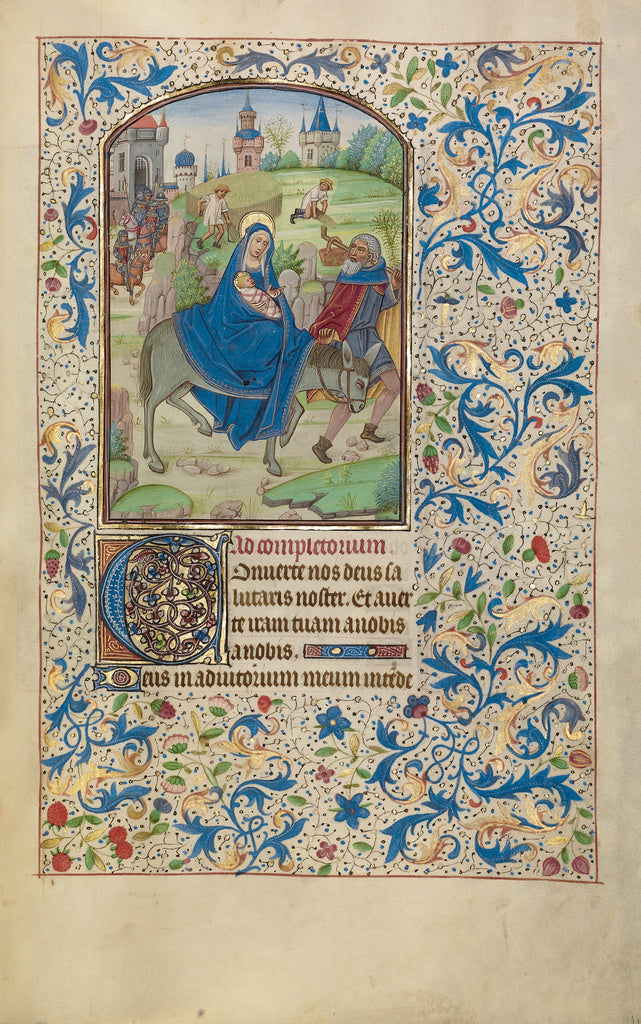 Ad completorium
Converte nos deus sa
lutaris noster. Et auer
te iram tuam a nobis
a nobis.
Deus in adiutorium meum intende